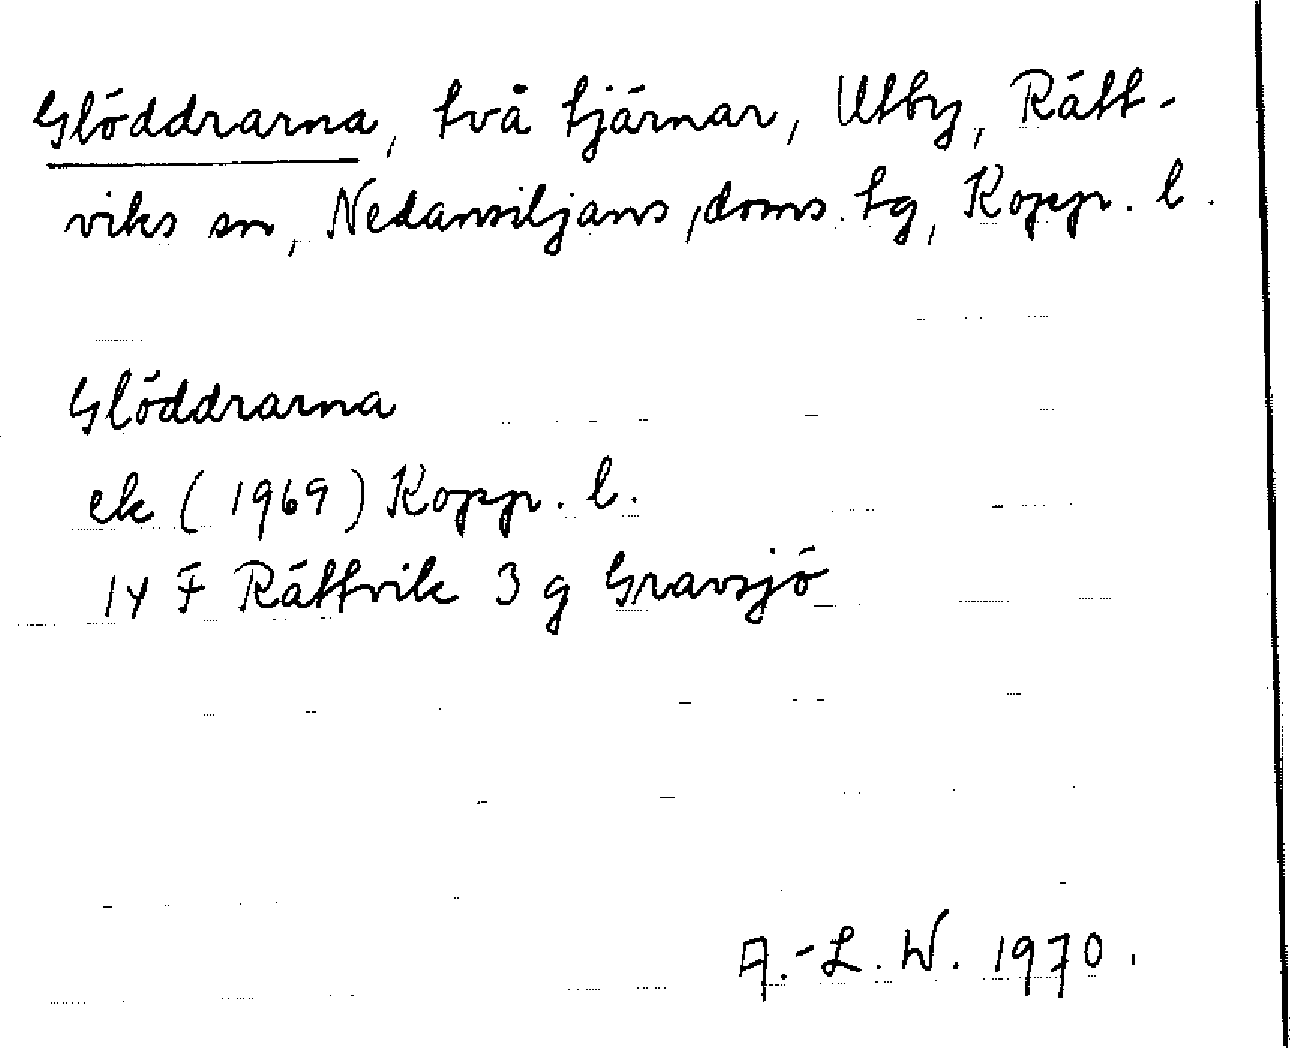 Glöddrarna, två tjärnar, Utby, Rätt-
viks sn, Nedansiljans, doms. tg, Kopp. l.
Glöddrarna
ek (1969) Kopp. l.
14 F Rättvik 3 g Gravsjö
A.-L. W. 1970.